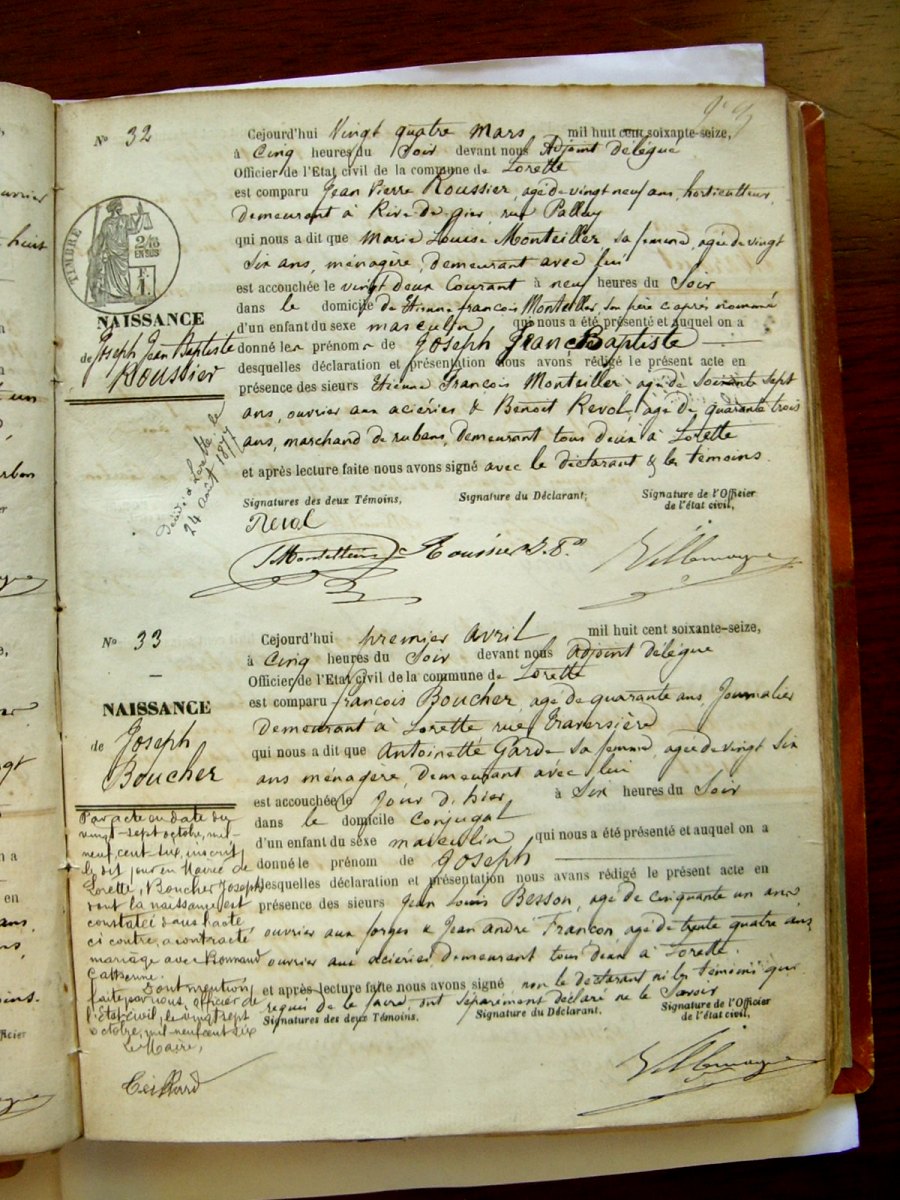 N° 32
Cejourd'hui Vingt quatre Mars mil huit cent soixante-seize,
à Cinq heures du Soir devant nous Adjoint délégué
Officier de l'Etat civil de la commune de Lorette
est comparu Jean Pierre Roussier, agé de vingt neuf ans, horticulteur
demeurant à Rive de gier, rue Palluy
qui nous a dit que Marie Louise Monteiller sa femme, agée de vingt
six ans, ménagère, demeurant avec lui
est accouchée le vingt deux Courant à neuf heures du Soir
dans le domicile de Etienne françois Monteiller, son père ci après nommé
d'un enfant du sexe masculin qui nous a été présenté et auquel on a
donné les prénoms de Joseph Jean Baptiste
desquelles déclaration et présentation nous avons rédigé le présent acte en
présence des sieurs Etienne François Monteiller agé de soixante sept
ans, ouvrier aux aciéries & Benoit Revol, agé de quarante trois
ans, marchand de rubans, demeurant tous deux à Lorette
et après lecture faite nous avons signé avec le déclarant & les témoins.
TIMBRE
NAISSANCE
de Joseph Jean Baptiste
Roussier
Décédé à Lorette le
24 août 1877
Signatures des deux Témoins, Signature du Déclarant; Signature de l'Officier
de l'état civil,
Revol
Roussier J. P.
Villemagne
N° 33
Cejourd'hui premier avril mil huit cent soixante-seize,
à Cinq heures du Soir devant nous Adjoint délégué
Officier de l'Etat civil de la commune de Lorette
est comparu françois Boucher, agé de quarante ans, Journalier
demeurant à Lorette rue traversière
qui nous a dit que Antoinette Garde sa femme, agée de vingt six
ans ménagère, demeurant avec lui
est accouchée le Jour d'hier à Six heures du Soir
dans le domicile Conjugal
d'un enfant du sexe masculin qui nous a été présenté et auquel on a
donné le prénom de Joseph
desquelles déclaration et présentation nous avons rédigé le présent acte en
présence des sieurs Jean Louis Besson, agé de cinquante un ans
ouvrier aux forges & Jean andré Francon agé de trente quatre ans,
ouvrier aux aciéries demeurant tous deux à Lorette.
et après lecture faite nous avons signé non le déclarant ni les témoins qui
requis de le faire ont séparément déclaré ne le Savoir
NAISSANCE
de Joseph
Boucher
Par acte en date du
vingt-sept octobre, mil-
neuf-cent-six, inscrit
le dit jour en Mairie de
Lorette, Boucher Joseph
dont la naissance est
constatée dans l'acte
ci contre, a contracté
mariage avec Bonnaud
Dont mention
faite par nous, officier de
l'Etat civil, le vingt sept
octobre, mil neuf cent six
Le Maire,
Signatures des deux Témoins. Signature du Déclarant. Signature de l'Officier
de l'état civil,
Villemagne